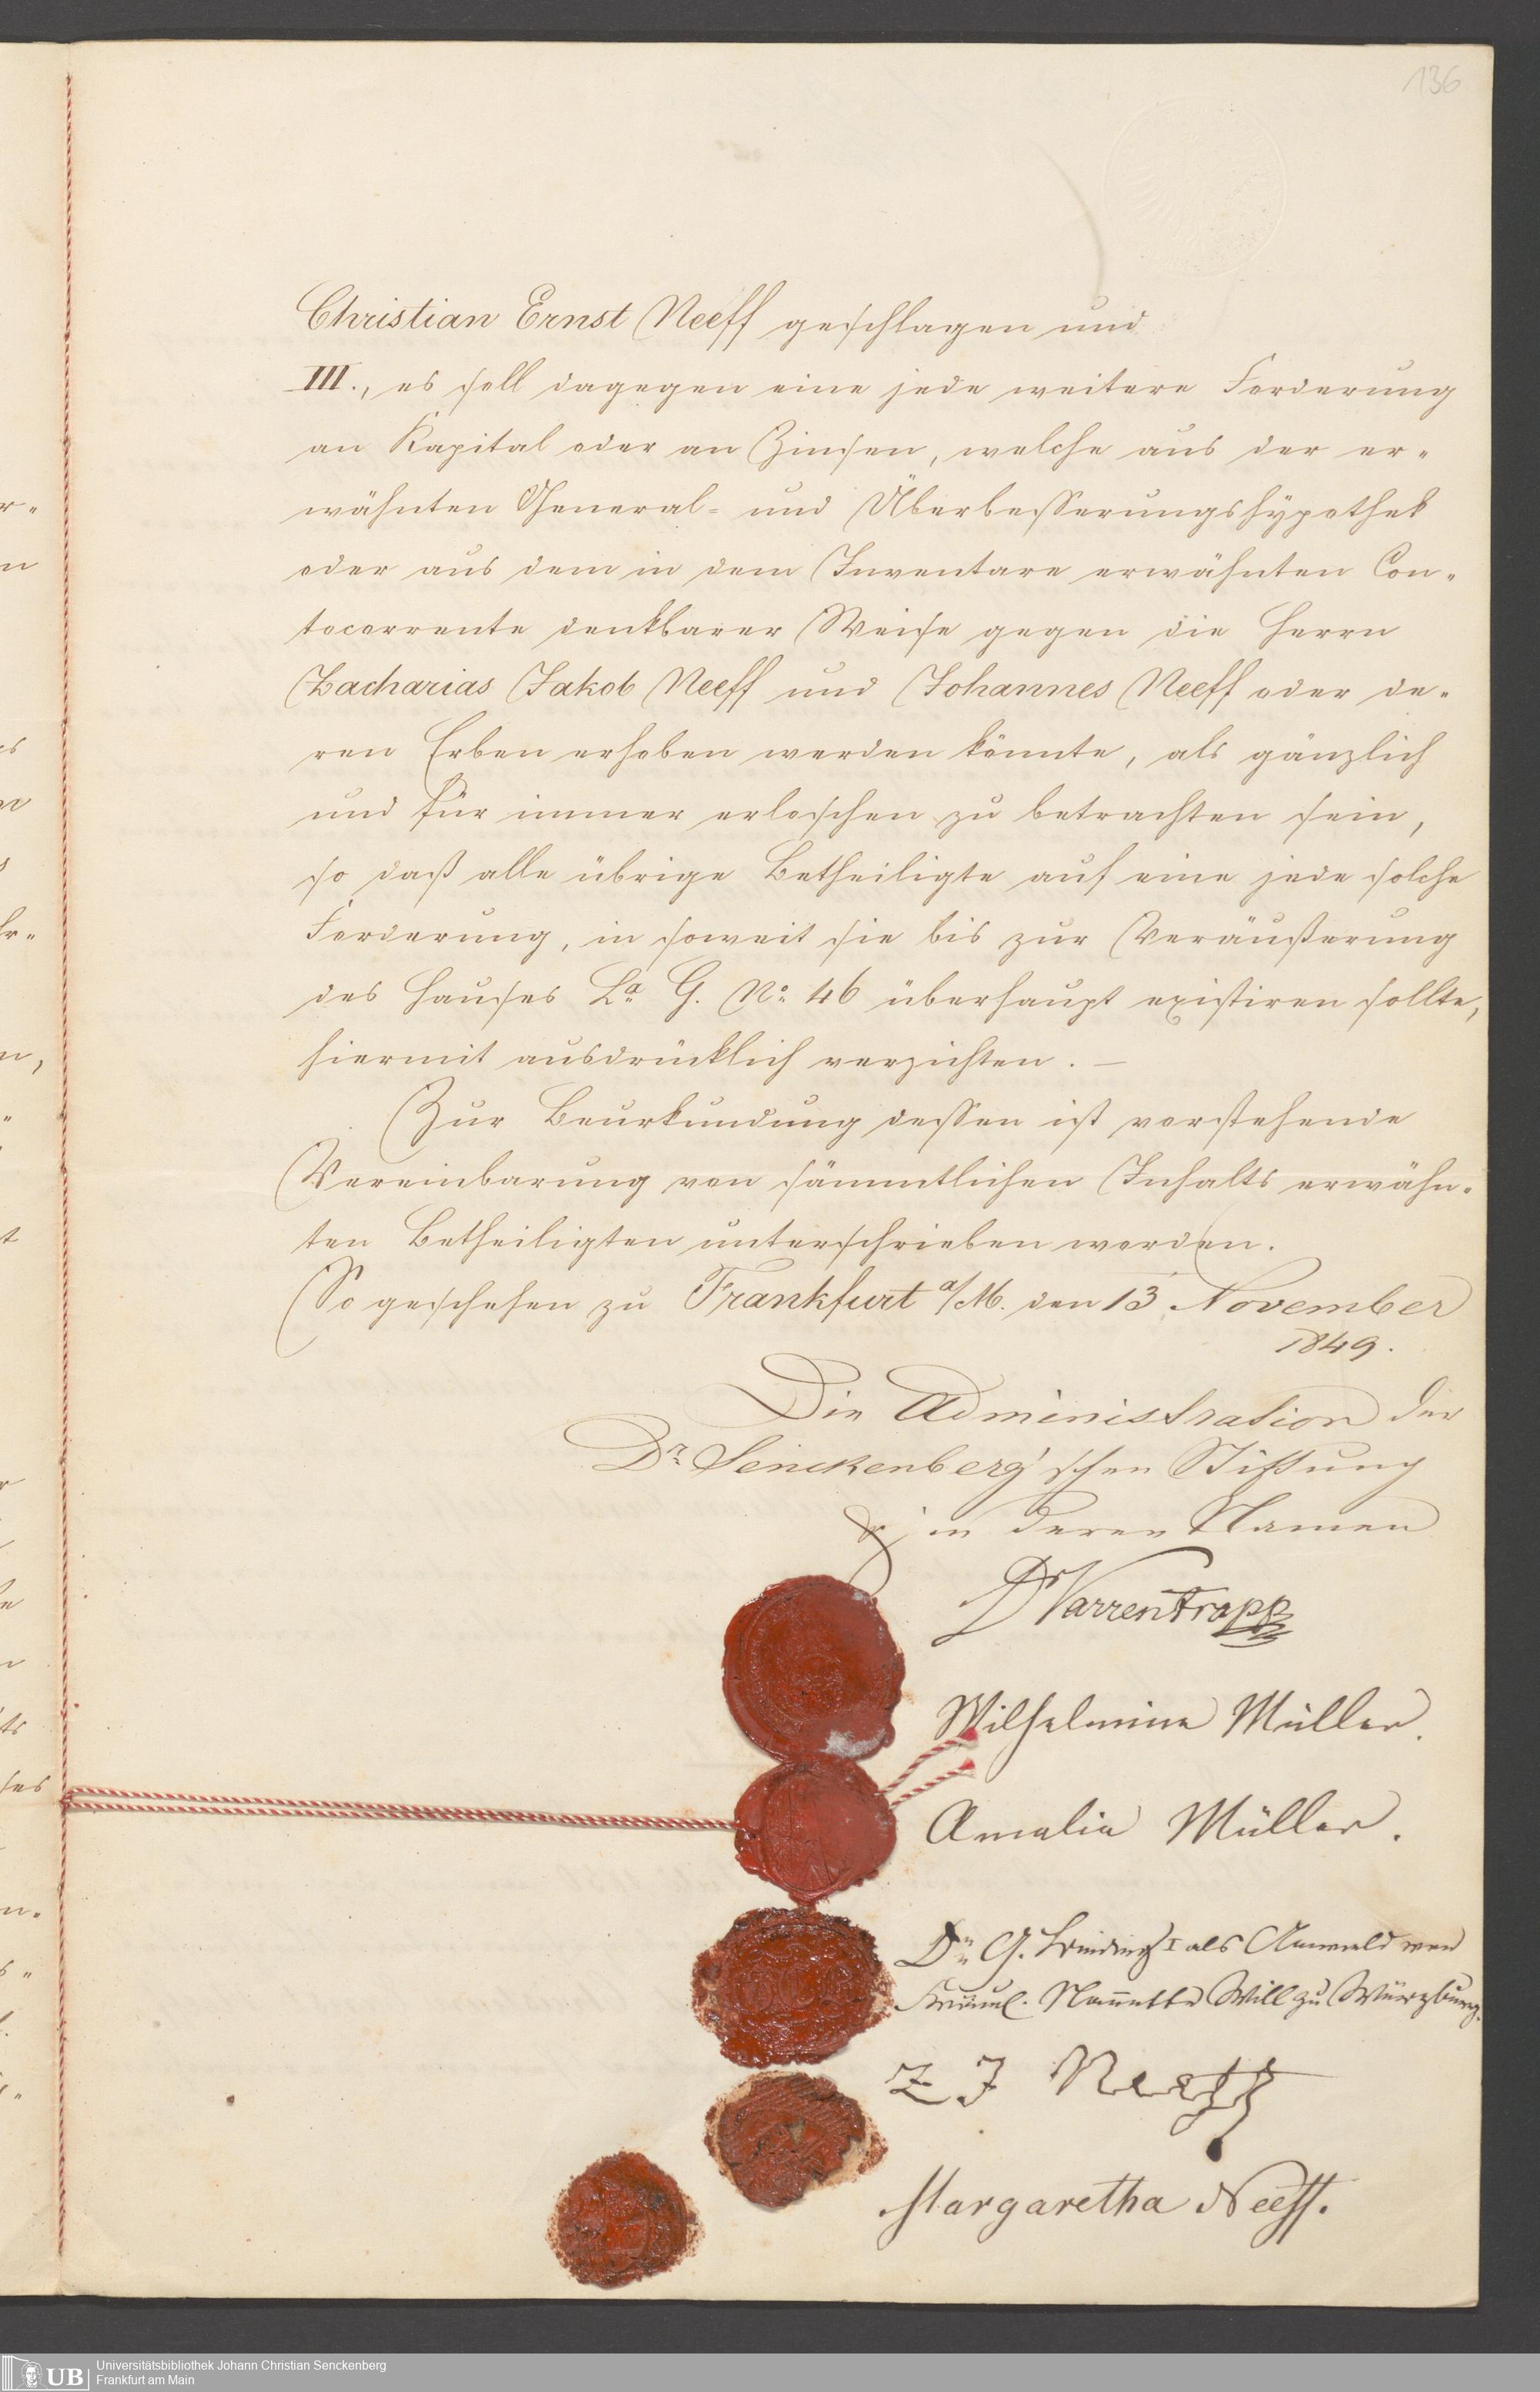 136
Christian Ernst Neeff geschlagen und
III., es soll dagegen eine jede weitere Forderung
an Kapital oder an Zinsen, welche aus der er-
wähnten General- und Überbesserungshypothek
oder aus dem in dem Inventare erwähnten Con-
tocorrente denkbarer Weise gegen die Herrn
Zacharias Jakob Neeff und Johannes Neeff oder de-
ren Erben erhoben werden könnte, als gänzlich
und für immer erloschen zu betrachten sein,
so daß alle übrige Betheiligte auf eine jede solche
Forderung, in soweit sie bis zur Veräußerung
des Hauses La G. No 46 überhaupt existiren sollte,
hiermit ausdrücklich verzichten. —
Zur Beurkundung dessen ist vorstehende
Vereinbarung von sämmtlichen Inhalts erwähn-
ten Betheiligten unterschrieben worden.
So geschehen zu Frankfurt a/M. den 13 November
1849.
Die Administration der
Dr. Senckenberg'schen Stiftung
& in deren Namen
Dr Varrentrapp
Wilhelmine Müller.
Amalia Müller.
Dr. G. I als Anwald von
Fräul. Nannette Will zu Würzburg.
Z J Neeff
Margaretha Neeff.
UB
Universitätsbibliothek Johann Christian Senckenberg
Frankfurt am Main